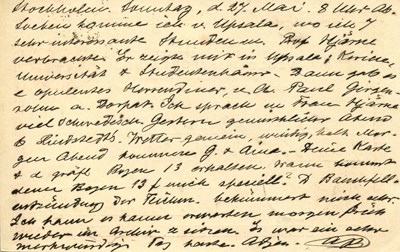 Stockholm Sonntag, d. 27. Mai. 8 Uhr Ab.
Soeben komme ich v. Upsala, wo ich 7
sehr interessante Stunden m. Prof Hjärne
verbrachte. Er zeigte mir in Upsala: Kirche,
Universität & Studentenhäuser. Dann gab es
e opulentes Herrendiner, u. A. Paul
a. Dorpat. Ich sprach m. Frau Hjärne
viel Schwedisch. Gestern gemütlicher Abend
b Liedstedts. Wetter gemein, windig, kalt. Mor-
gen Abend kommen G. & Aina. - Deine Karte
& d. Bogen 13 erhalten. Wann kommt
denn Bogen 13 f. mich speciell? D.
der bekümmert mich sehr.
Ich kann es kaum erwarten morgen früh
wieder im Archiv z. sitzen. Es war ein sehr
merkwürdiger Tag heute. Adjen.